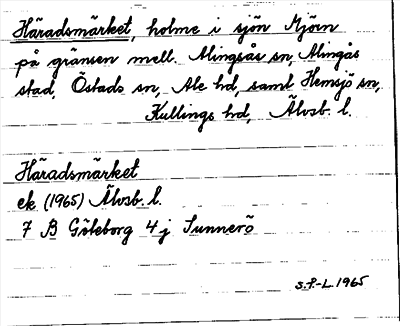 Häradsmärket, holme i sjön Mjörn
på gränsen mell. Alingsås sn, Alingås
stad, Östads sn, Ale hd, samt Hemsjö sn,
Kullings hd, Älvsb. l.
Häradsmärket
ek (1965) Älvsb. l.
7 B Göteborg 4 j Sunnerö
S.F.-L. 1965